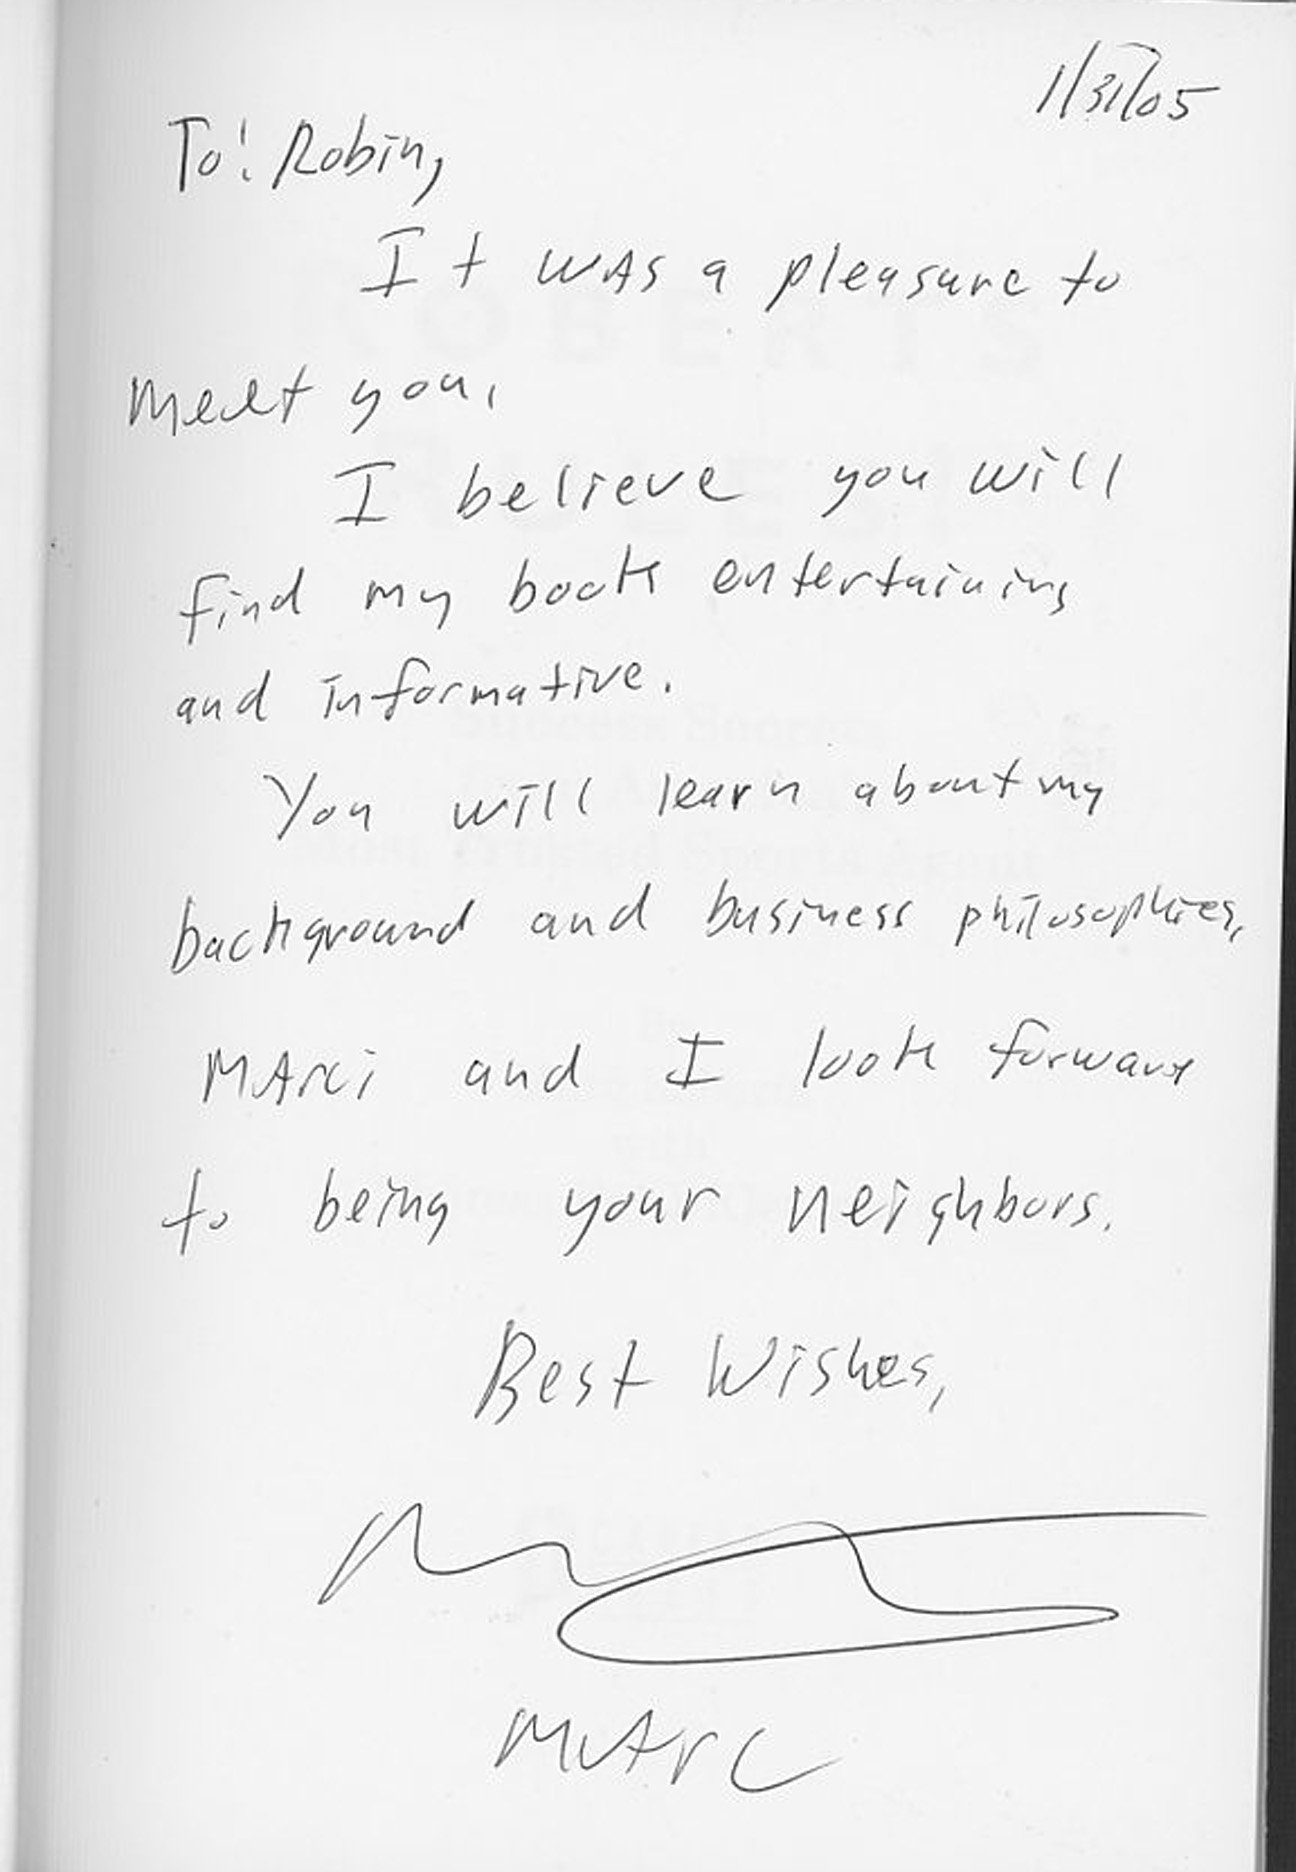 1/31/05
To: Robin,
It was a pleasure to
meet you.
I believe you will
find my book entertaining
and informative.
You will learn about my
background and business philosophies,
MArci and I look forward
to being your neighbors.
Best Wishes,
MArc